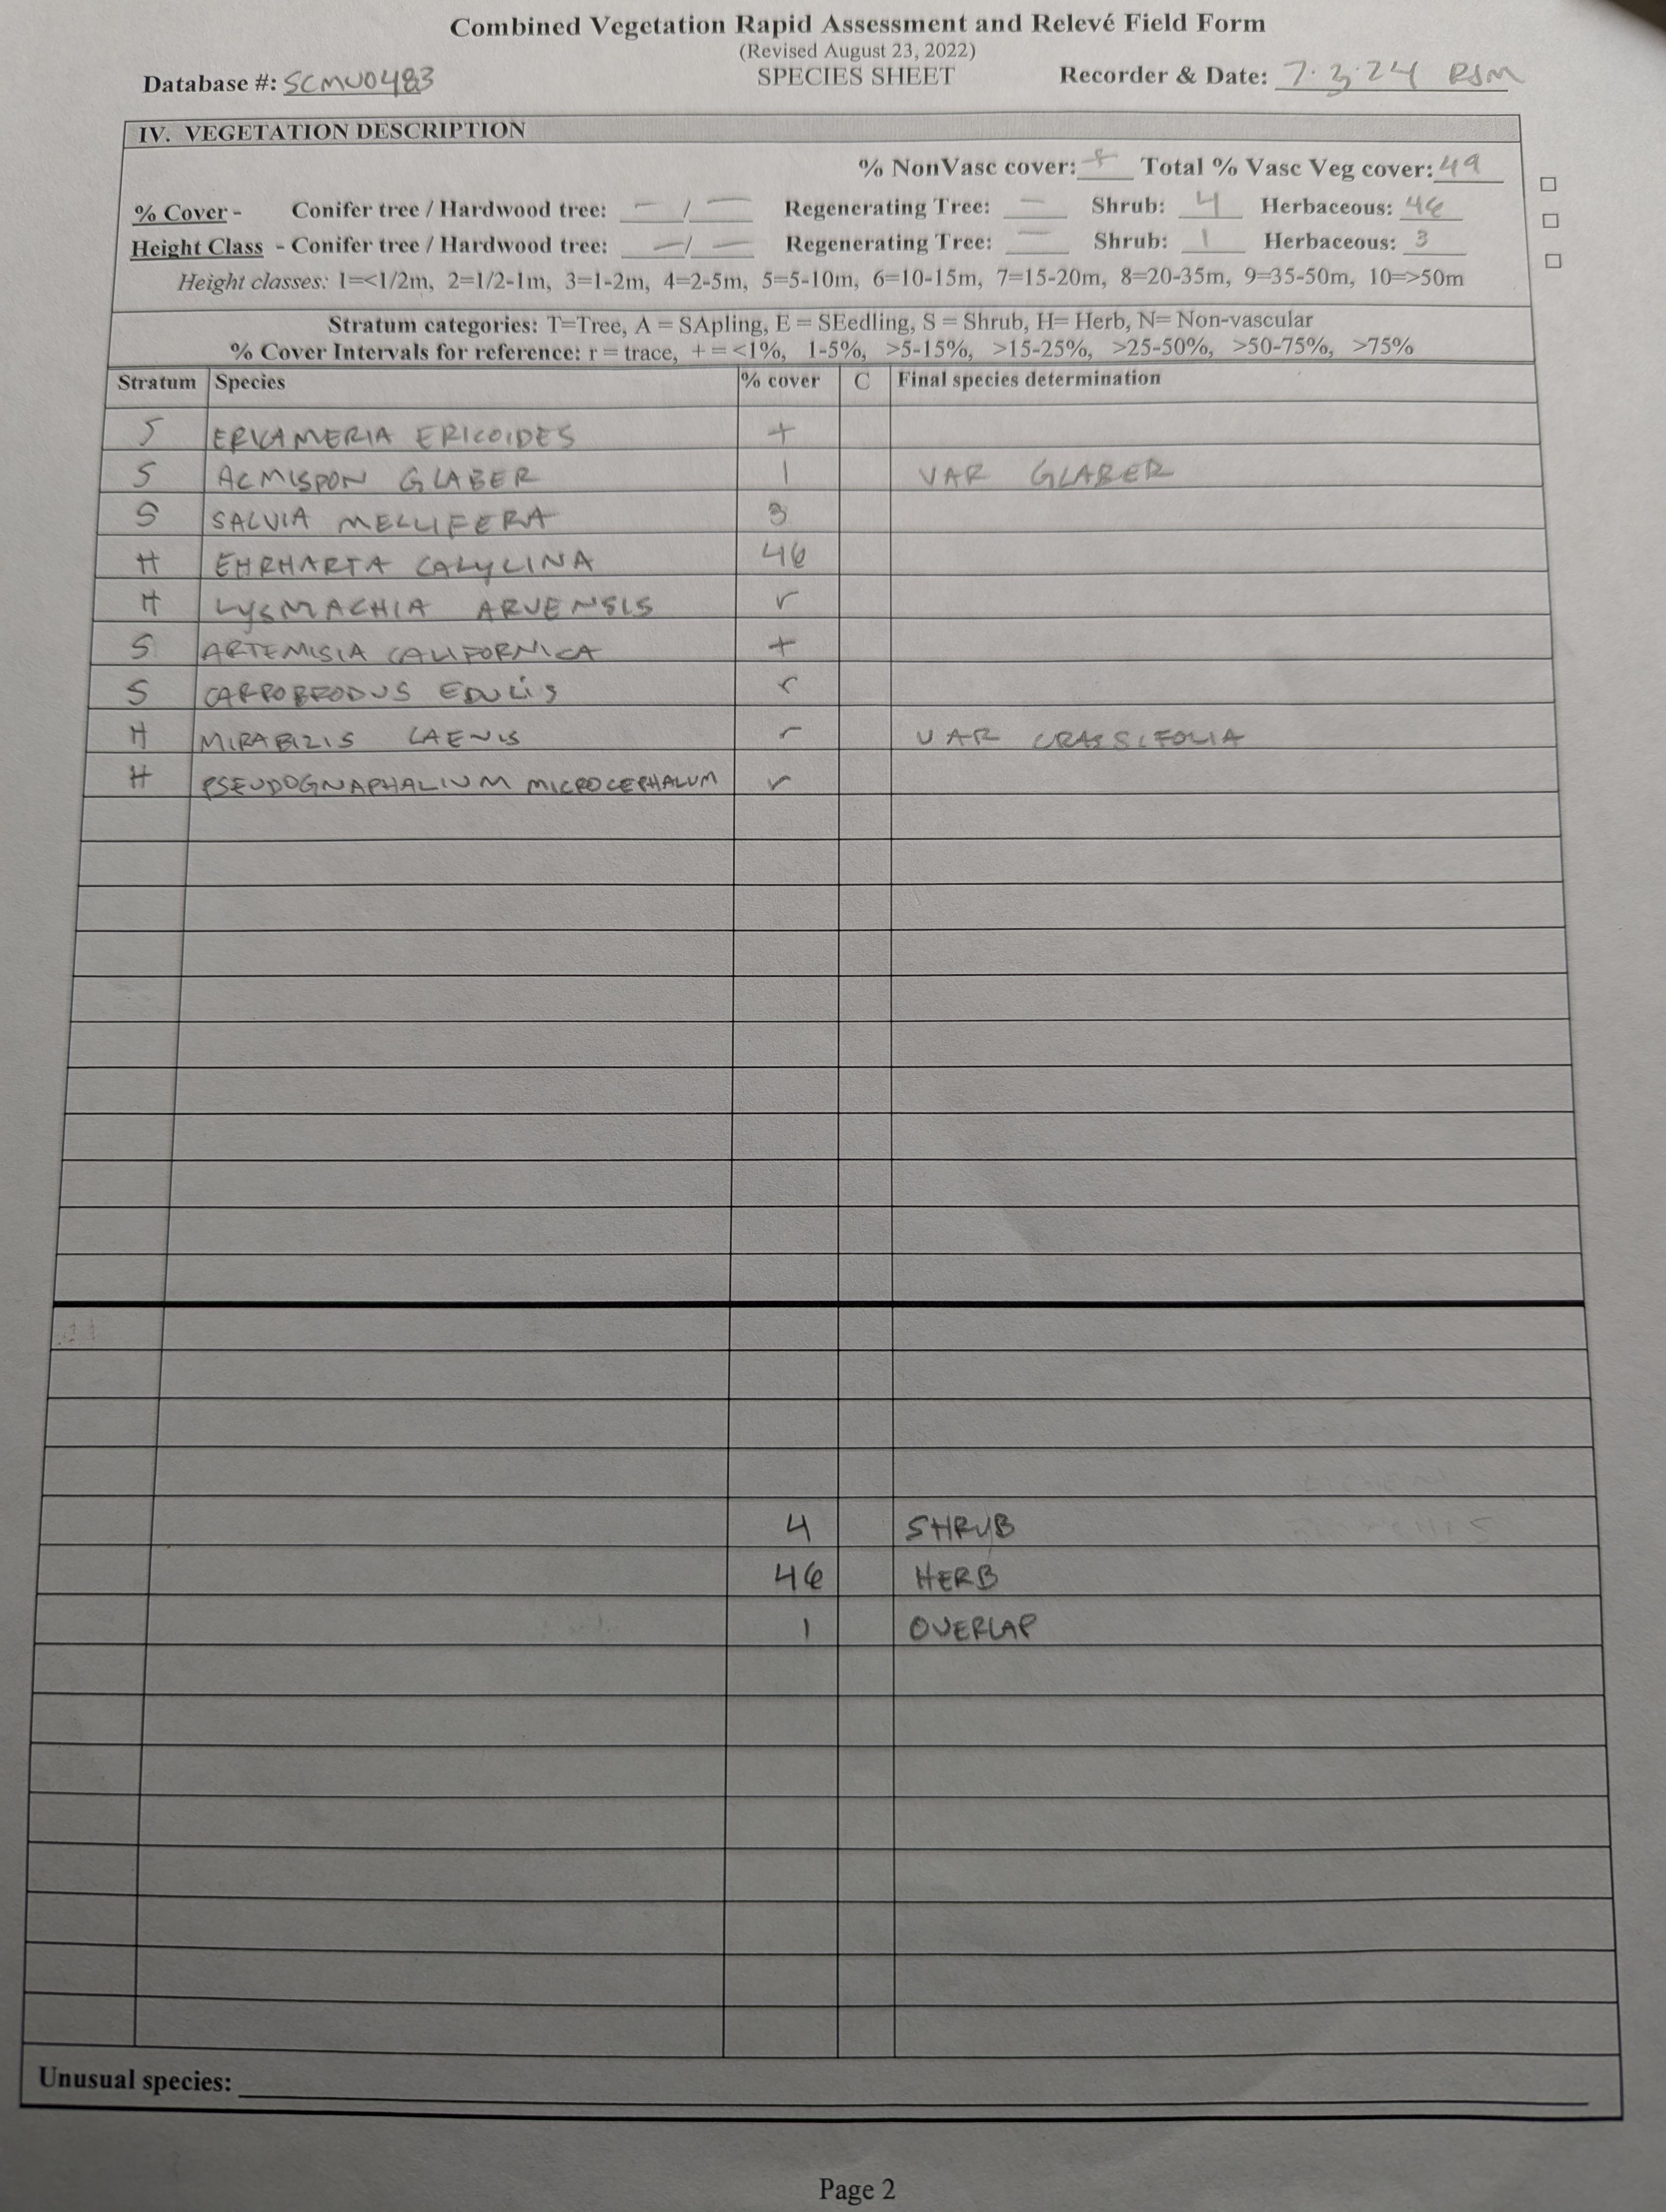 Combined Vegetation Rapid Assessment and Relevé Field Form
(Revised August 23, 2022)
Database #: SCMU0483 SPECIES SHEET Recorder & Date: 7.3.24 RJM
IV. VEGETATION DESCRIPTION
% NonVasc cover: + Total % Vasc Veg cover: 49
% Cover - Conifer tree / Hardwood tree: — / — Regenerating Tree: — Shrub: 4 Herbaceous: 46
Height Class - Conifer tree / Hardwood tree: — / — Regenerating Tree: — Shrub: 1 Herbaceous: 3
Height classes: 1=<1/2m, 2=1/2-1m, 3=1-2m, 4=2-5m, 5=5-10m, 6=10-15m, 7=15-20m, 8=20-35m, 9=35-50m, 10=>50m
Stratum categories: T=Tree, A = SApling, E = SEedling, S = Shrub, H= Herb, N= Non-vascular
% Cover Intervals for reference: r = trace, + = <1%, 1-5%, >5-15%, >15-25%, >25-50%, >50-75%, >75%
Stratum Species % cover C Final species determination
S ERICAMERIA ERICOIDES +
S ACMISPON GLABER 1 VAR GLABER
S SALVIA MELLIFERA 3
H EHRHARTA CALYCINA 46
H LYSMACHIA ARVENSIS r
S ARTEMISIA CALIFORNICA +
S CARPOBRODUS EDULIS r
H MIRABILIS LAENIS r VAR CRASSIFOLIA
H PSEUDOGNAPHALIUM MICROCEPHALUM r
4 SHRUB
46 HERB
1 OVERLAP
Unusual species:
Page 2